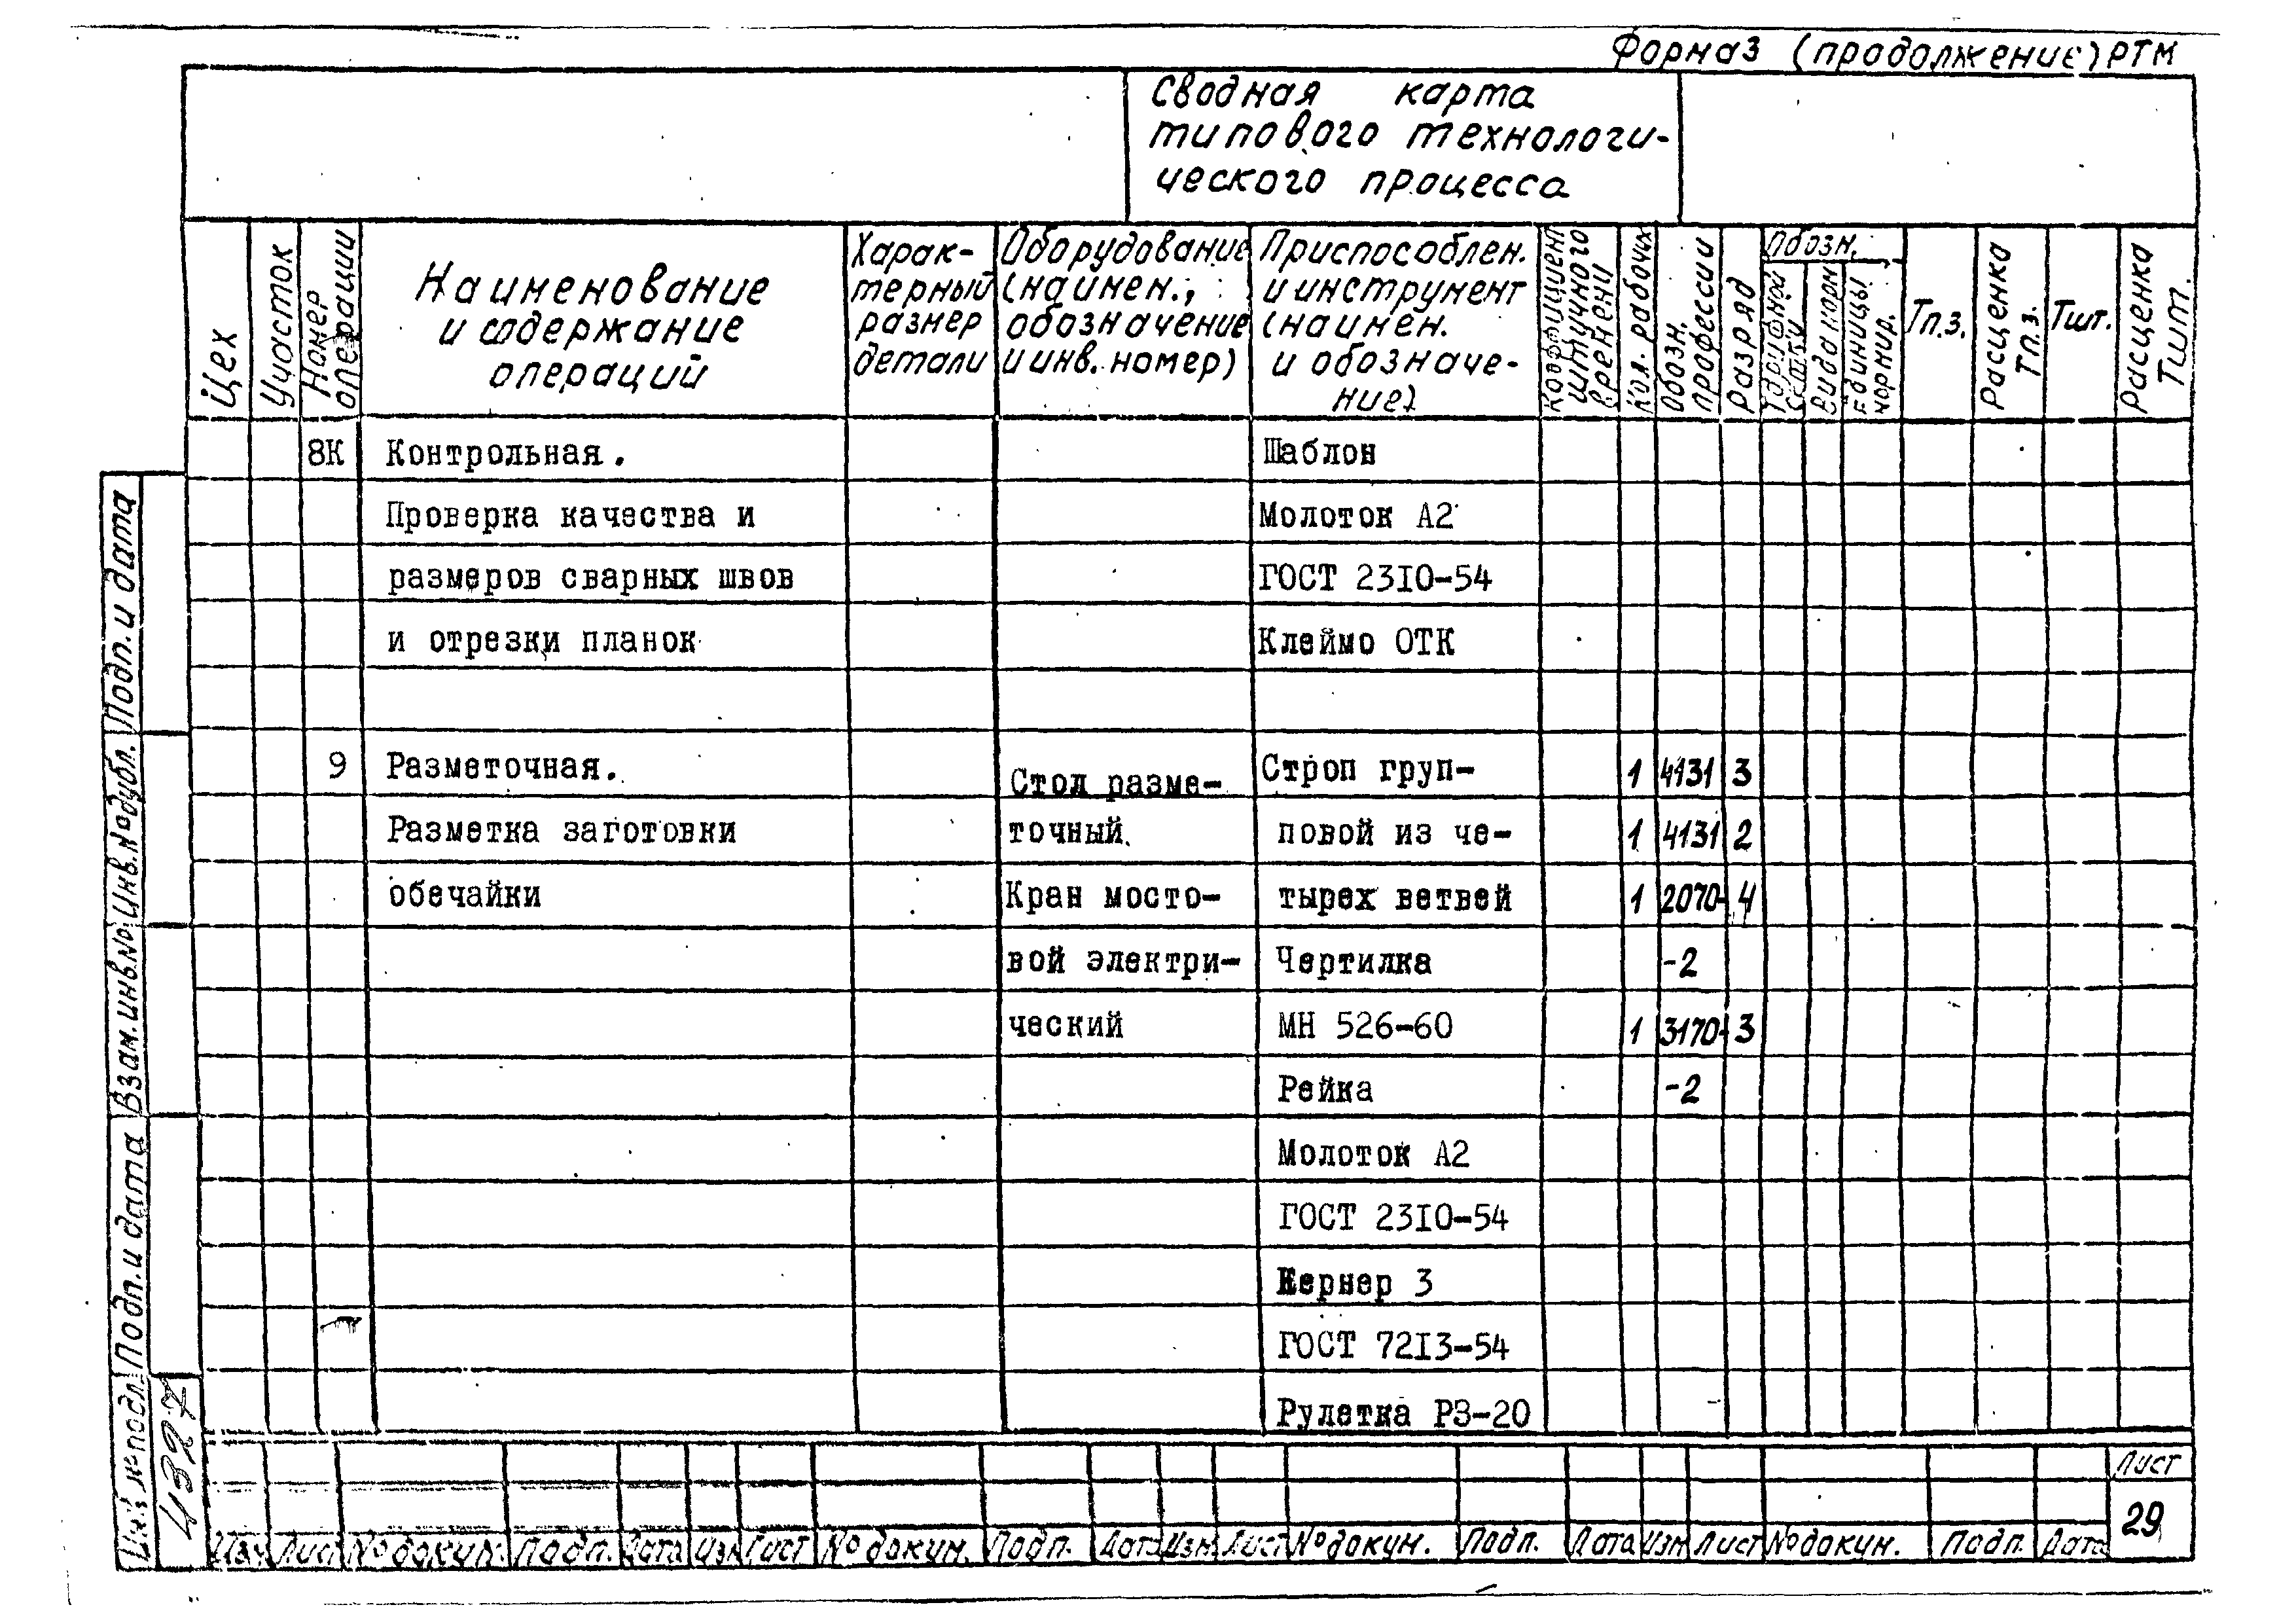 Форма 3 (продолжение) РТМ
Сводная карта
типового технологи-
ческого процесса
Цех
Участок
Номер
операции
Наименование
и содержание
операций
Харак-
терный
размер
детали
Оборудование
(наимен.,
обозначение
и инв. номер)
Приспособлен.
и инструмент
(наимен.
и обозначе-
ние)
Коэффициент
штучного
времени
Кол. рабочих
Обозн.
профессии
Разряд
Обозн.
Тарифной
сетки
Вида норм
Единицы
нормир.
Тп.з.
Расценка
Тп.з.
Тшт.
Расценка
Тшт.
8К Контрольная. Шаблон
Проверка качества и Молоток А2
размеров сварных швов ГОСТ 2310-54
и отрезки планок Клеймо ОТК
9 Разметочная. Стол разме- Строп груп- 1 4131 3
Разметка заготовки точный. повой из че- 1 4131 2
обечайки Кран мосто- тырех ветвей 1 2070- 4
вой электри- Чертилка -2
ческий МН 526-60 1 3170- 3
Рейка -2
Молоток А2
ГОСТ 2310-54
Кернер 3
ГОСТ 7213-54
Рулетка РЗ-20
Подп. и дата
Инв.№дубл.
Взам.инв.№
Подп. и дата
Инв.№подл.
4327
Лист
29
Изм Лист №докум. Подп. Дата Изм Лист №докум. Подп. Дата Изм. Лист №докум. Подп. Дата Изм Лист №докум. Подп. Дата